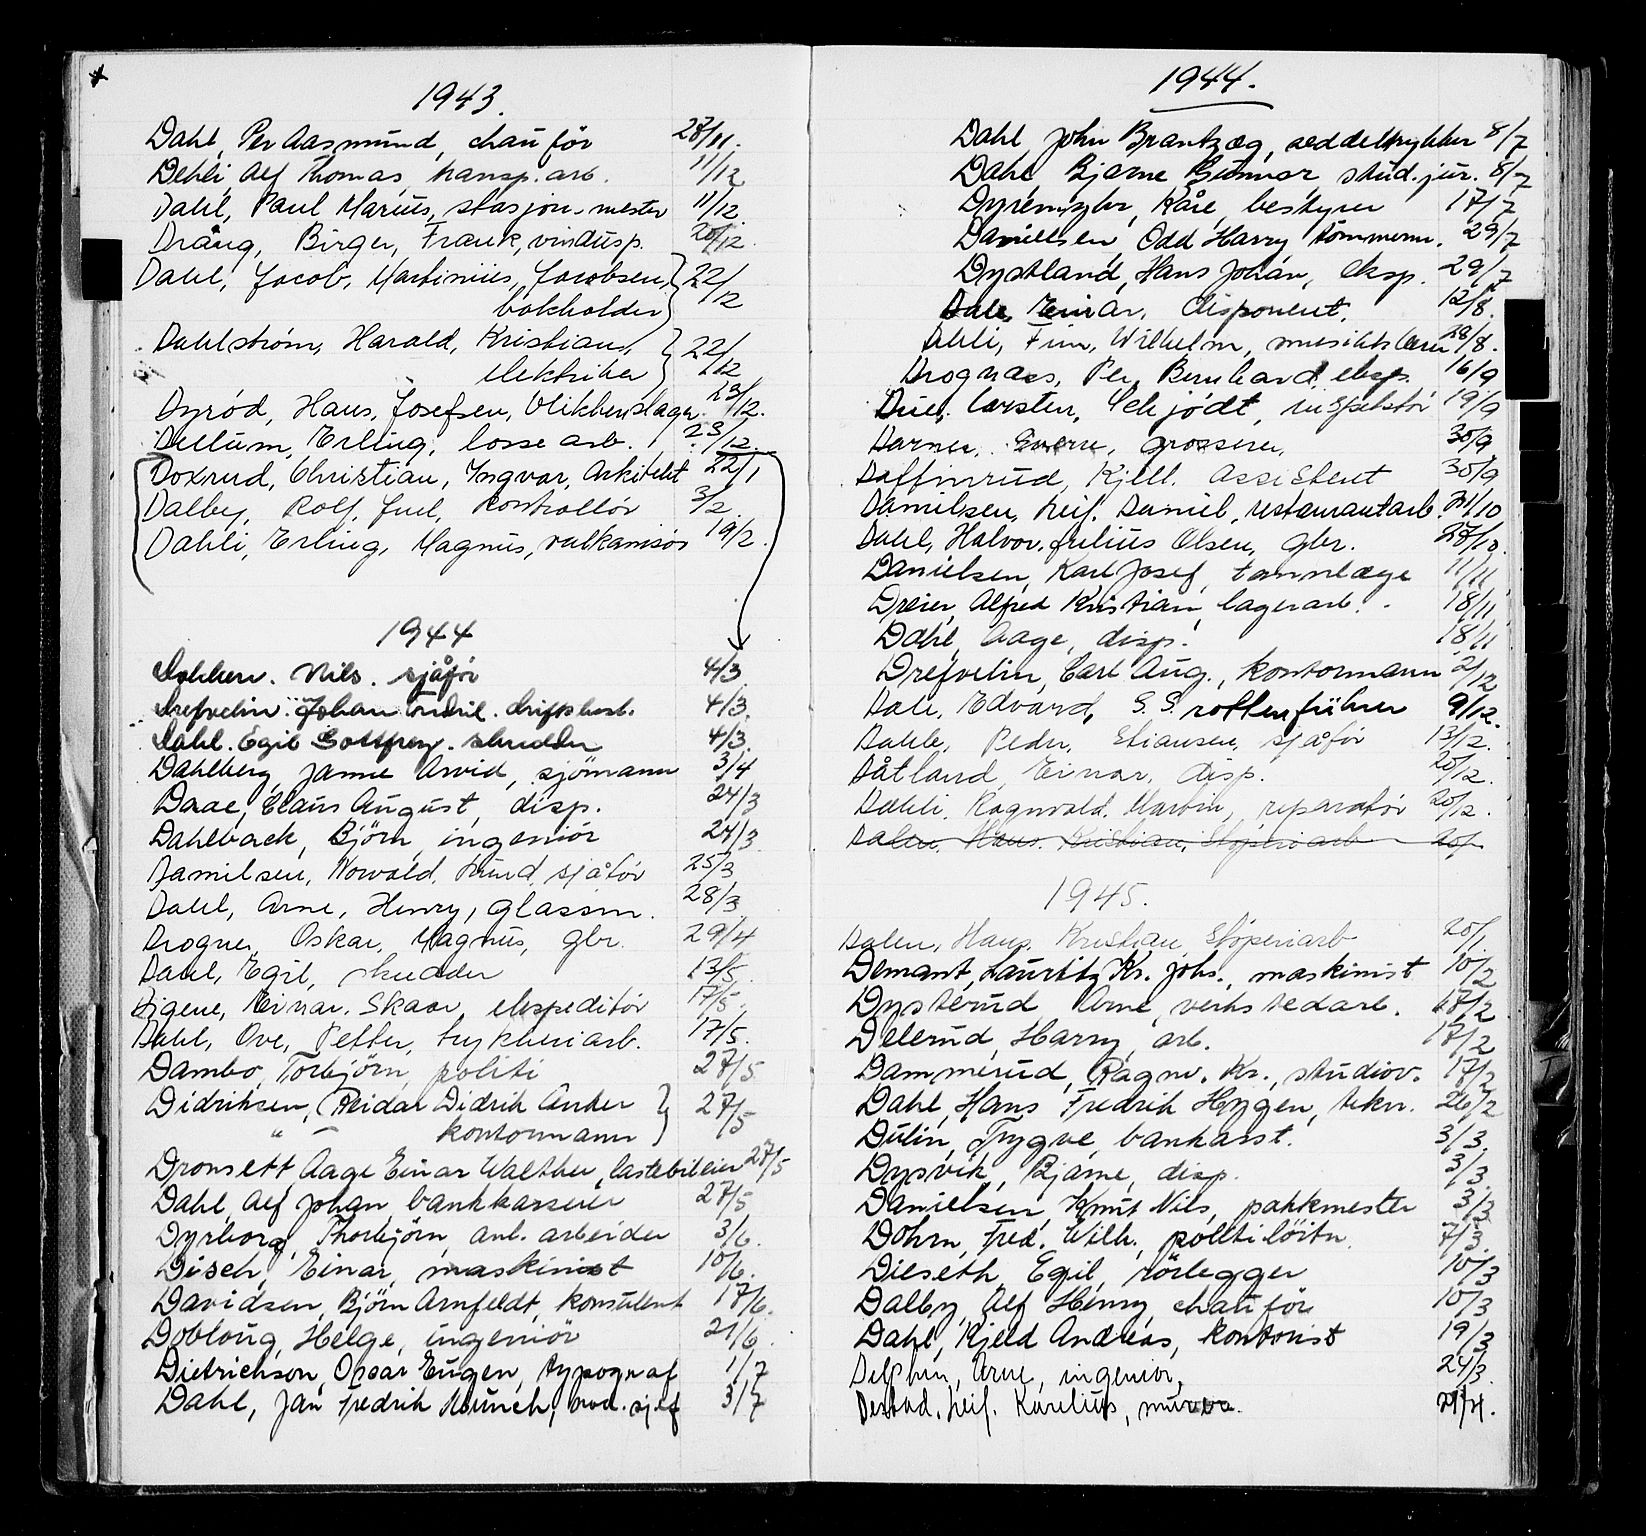 1943.
Dahl, Per Aasmund, chauför 28/11.
Dehli, Alf Thomas, transp. arb. 11/12
Dahl, Paul Marius, stasjons-mester 11/12
Drång, Birger, Frank, vindusp. 20/12.
Dahl, Jacob, Martinius, Jacobsen, 22/12
bokholder
Dahlstrøm, Harald, Kristian, 22/12
elektriker
Dyrød, Hans, Josefsen, blikkenslager. 23/12.
Dullum, Erling, losse arb. 23/12.
Doxrud, Christian, Yngvar, Arkitekt 22/1
Dalby, Rolf, Juel, Kontrollör 3/2.
Dahli, Erling, Magnus, vulkanisör 19/2.
1944
Dokken. Nils. sjåfør 4/3.
Drefvelin. Johan Endril. driftsbest. 4/3.
Dahl. Egil Gottfrey. skredder 4/3.
Dahlberg, Janne Arvid, sjömann 3/4
Daae, Claus August, disp. 24/3
Dahlback, Björn, ingeniör 24/3
Danilsen, Norvald, Lund, sjåför 25/3
Dahl, Arne, Henry, glassm. 28/3
Drogner, Oskar, Magnus, gbr. 29/4
Dahl, Egil, skredder 13/5.
Digene, Einar. Skaar, ekspeditör 17/5.
Dahl, Ove, Petter, trykkeriarb. 17/5.
Dambo, Torbjörn, politi 27/5
Didriksen, Reidar Didrik Anker 27/5
" — kontormann
Dronsett, Aage Einar Walther, lastebileier 27/5
Dahl, Alf Johan, bankkasserer 27/5
Dyrborg, Thorbjörn, anl. arbeider 3/6.
Disch, Einar, maskinist 10/6.
Davidsen, Björn Arnfeldt, konsulent 17/6.
Dobloug, Helge, ingeniör 21/6.
Dietrichson, Oscar Eugen, typograf 1/7
Dahl, Jan Fredrik Munch, avd. sjef 3/7
1944.
Dahl, John Brantzæg, seddeltrykker 8/7
Dahl, Bjarne Gunnar stud. jur. 8/7
Kåre, bestyrer 17/7
Daniellsen, Odd Harry tömmerm. 29/7
Dystland, Hans Johan, eksp. 29/7
Dale, Einar, disponent, 12/8.
Dehli, Finn, Wilhelm, musikklærer 28/8.
Drognæs, Per, Bernhard, eksp. 16/9
Due, Carsten, Schjödt, inspektör 19/9
Darner, Sverre, grosserer, 30/9
Daffinrud, Kjell, Assistent 30/9
Danilsen, Leif. Daniel, restaurantarb. 21/10
Dahl, Halvor, Julius Olsen, gbr. 28/10.
Danielsen, Karl Josef, tannlæge 11/11
Dreier, Alfred Kristian, lagerarb. 18/11
Dahl, Aage, disp. 18/11
Drefvelin, Carl Aug., kontormann 2/12
Dale, Edvard, S.S. rottenführer 9/12.
Dahle, Peder, Eliassen, sjåför 13/12.
Dåtland, Einar, disp. 20/12.
Dæhli, Ragnvald, Martin, reparatör 20/12.
Dalen, Hans, Kristian, Støperiarb 20/
1945.
Dalen, Hans, Kristian, Støperiarb 20/1.
Demant, Lauritz Kr. Johs., maskinist 10/2
Dysterud, Arne, verkstedarb. 17/2
Delerud, Harry, arb. 17/2
Dammerud, Ragnv. Kr., studiov. 17/2
Dahl, Hans Fredrik Hygen, tekn. 26/2
Dulin, Trygve, bankasst. 3/3.
Dysvik, Bjarne, disp. 3/3.
Danielsen, Knut Nils, pakkmester 3/3
Dohrn, Fred. Wilh., politilöitn. 7/3.
Dieseth, Egil, rörlegger 10/3
Dalby, Alf Henry, chauför 10/3
Dahl, Kjeld Andreas, kontorist 19/3
Delphin, Arne, ingeniör, 24/3.
Destad, Leif. Karelius, murer. 21/4.